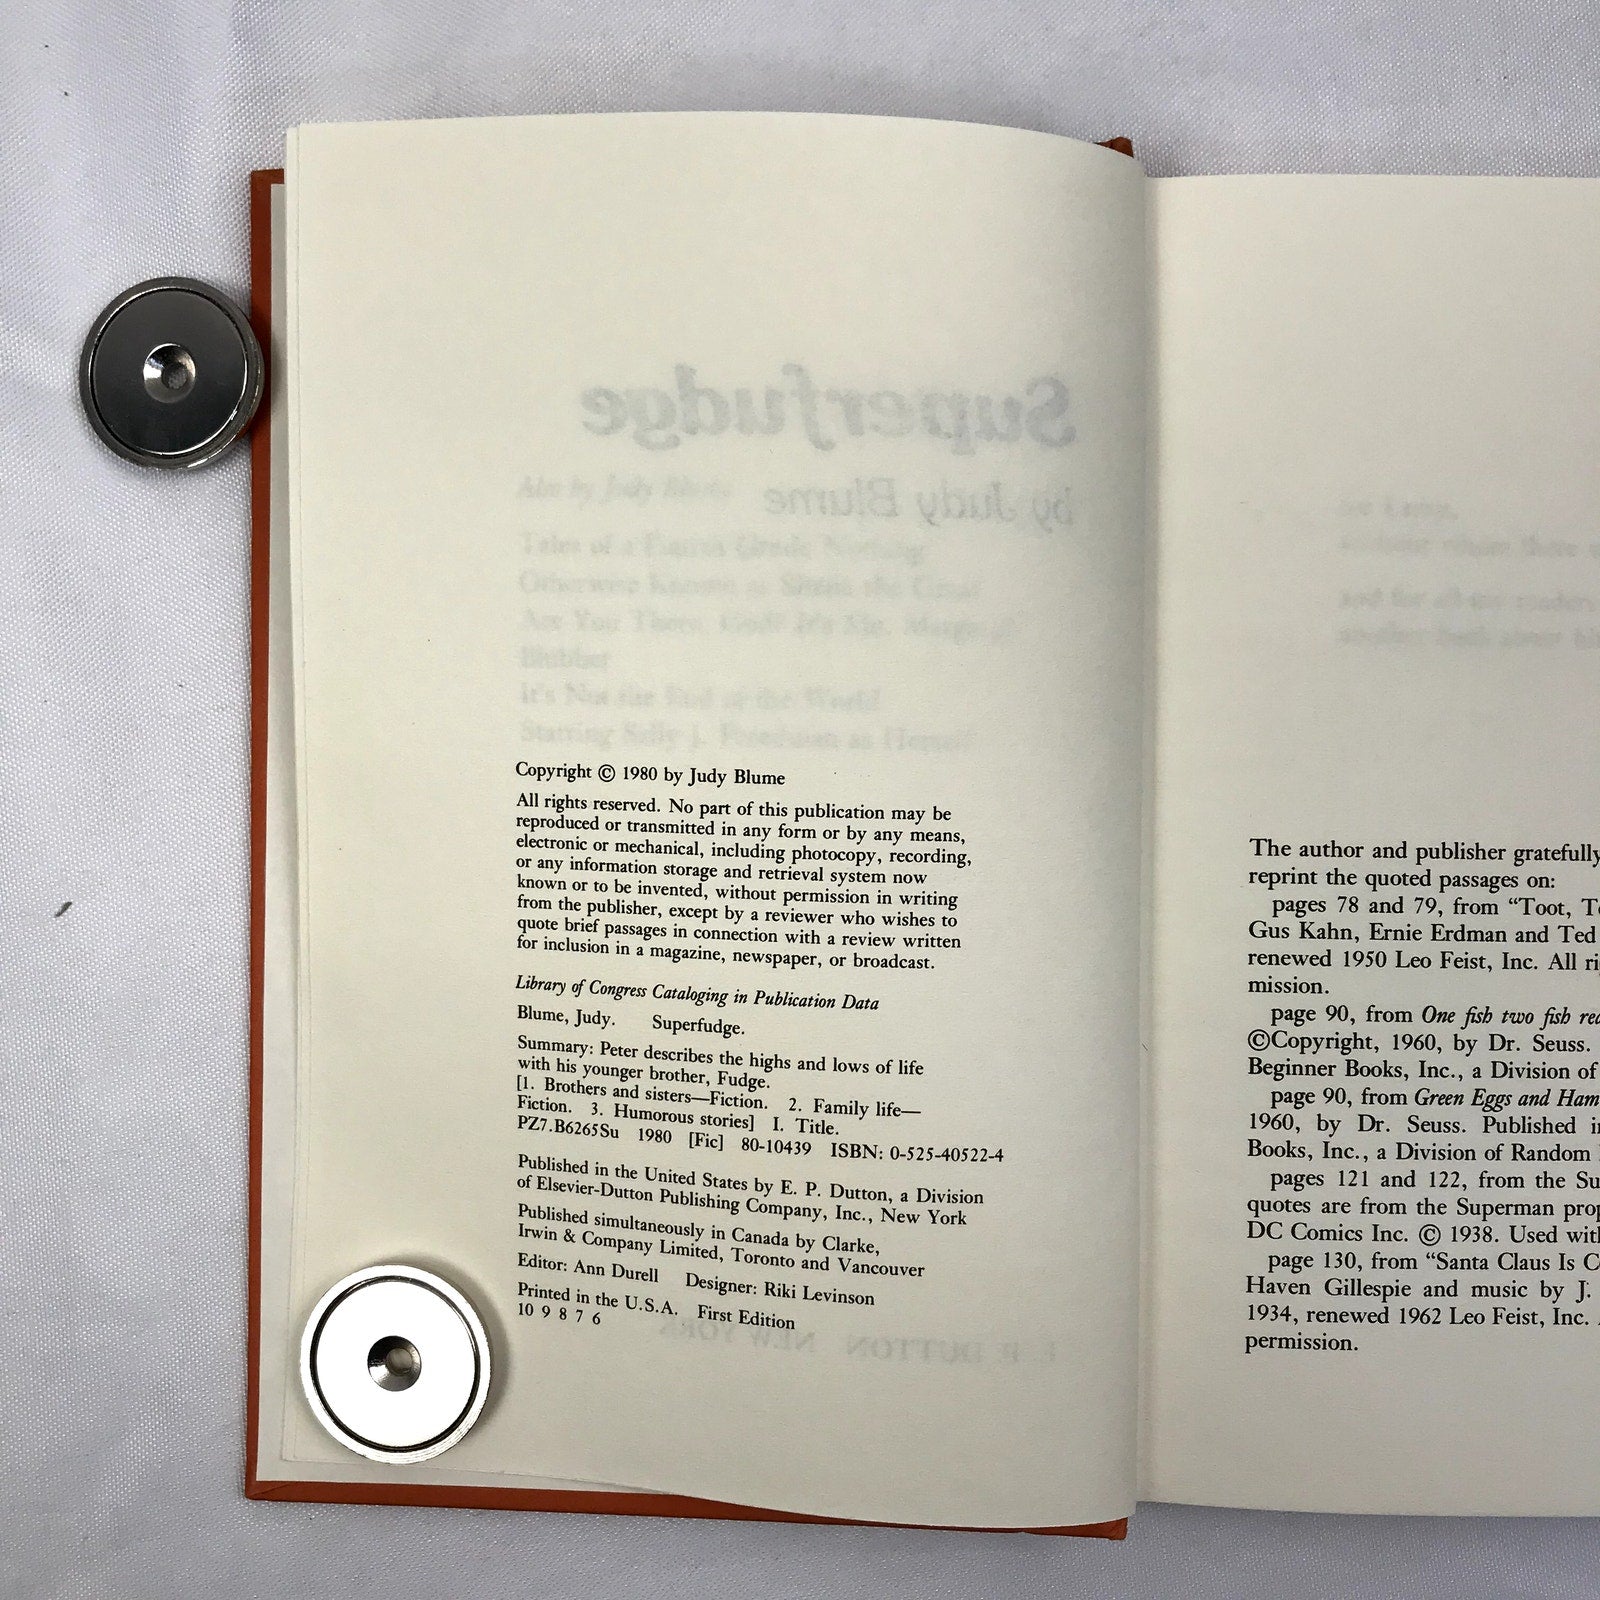 Superfudge
by Judy Blume
Also by Judy Blume
Tales of a Fourth Grade Nothing
Otherwise Known as Sheila the Great
Are You There, God? It's Me, Margaret
Blubber
It's Not the End of the World
Starring Sally J. Freedman as Herself
Copyright © 1980 by Judy Blume
All rights reserved. No part of this publication may be
reproduced or transmitted in any form or by any means,
electronic or mechanical, including photocopy, recording,
or any information storage and retrieval system now
known or to be invented, without permission in writing
from the publisher, except by a reviewer who wishes to
quote brief passages in connection with a review written
for inclusion in a magazine, newspaper, or broadcast.
Library of Congress Cataloging in Publication Data
Blume, Judy. Superfudge.
Summary: Peter describes the highs and lows of life
with his younger brother, Fudge.
[1. Brothers and sisters—Fiction. 2. Family life—
Fiction. 3. Humorous stories] I. Title.
PZ7.B6265Su 1980 [Fic] 80-10439 ISBN: 0-525-40522-4
Published in the United States by E. P. Dutton, a Division
of Elsevier-Dutton Publishing Company, Inc., New York
Published simultaneously in Canada by Clarke,
Irwin & Company Limited, Toronto and Vancouver
Editor: Ann Durell Designer: Riki Levinson
Printed in the U.S.A. First Edition
10 9 8 7 6
E. P. DUTTON NEW YORK
The author and publisher gratefully
reprint the quoted passages on:
pages 78 and 79, from “Toot,
Gus Kahn, Ernie Erdman and Ted
renewed 1950 Leo Feist, Inc. All
mission.
page 90, from One fish two fish
©Copyright, 1960, by Dr. Seuss.
Beginner Books, Inc., a Division of
page 90, from Green Eggs and Ham
1960, by Dr. Seuss. Published
Books, Inc., a Division of Random
pages 121 and 122, from the
quotes are from the Superman
DC Comics Inc. © 1938. Used
page 130, from “Santa Claus Is
Haven Gillespie and music by J.
1934, renewed 1962 Leo Feist, Inc.
permission.